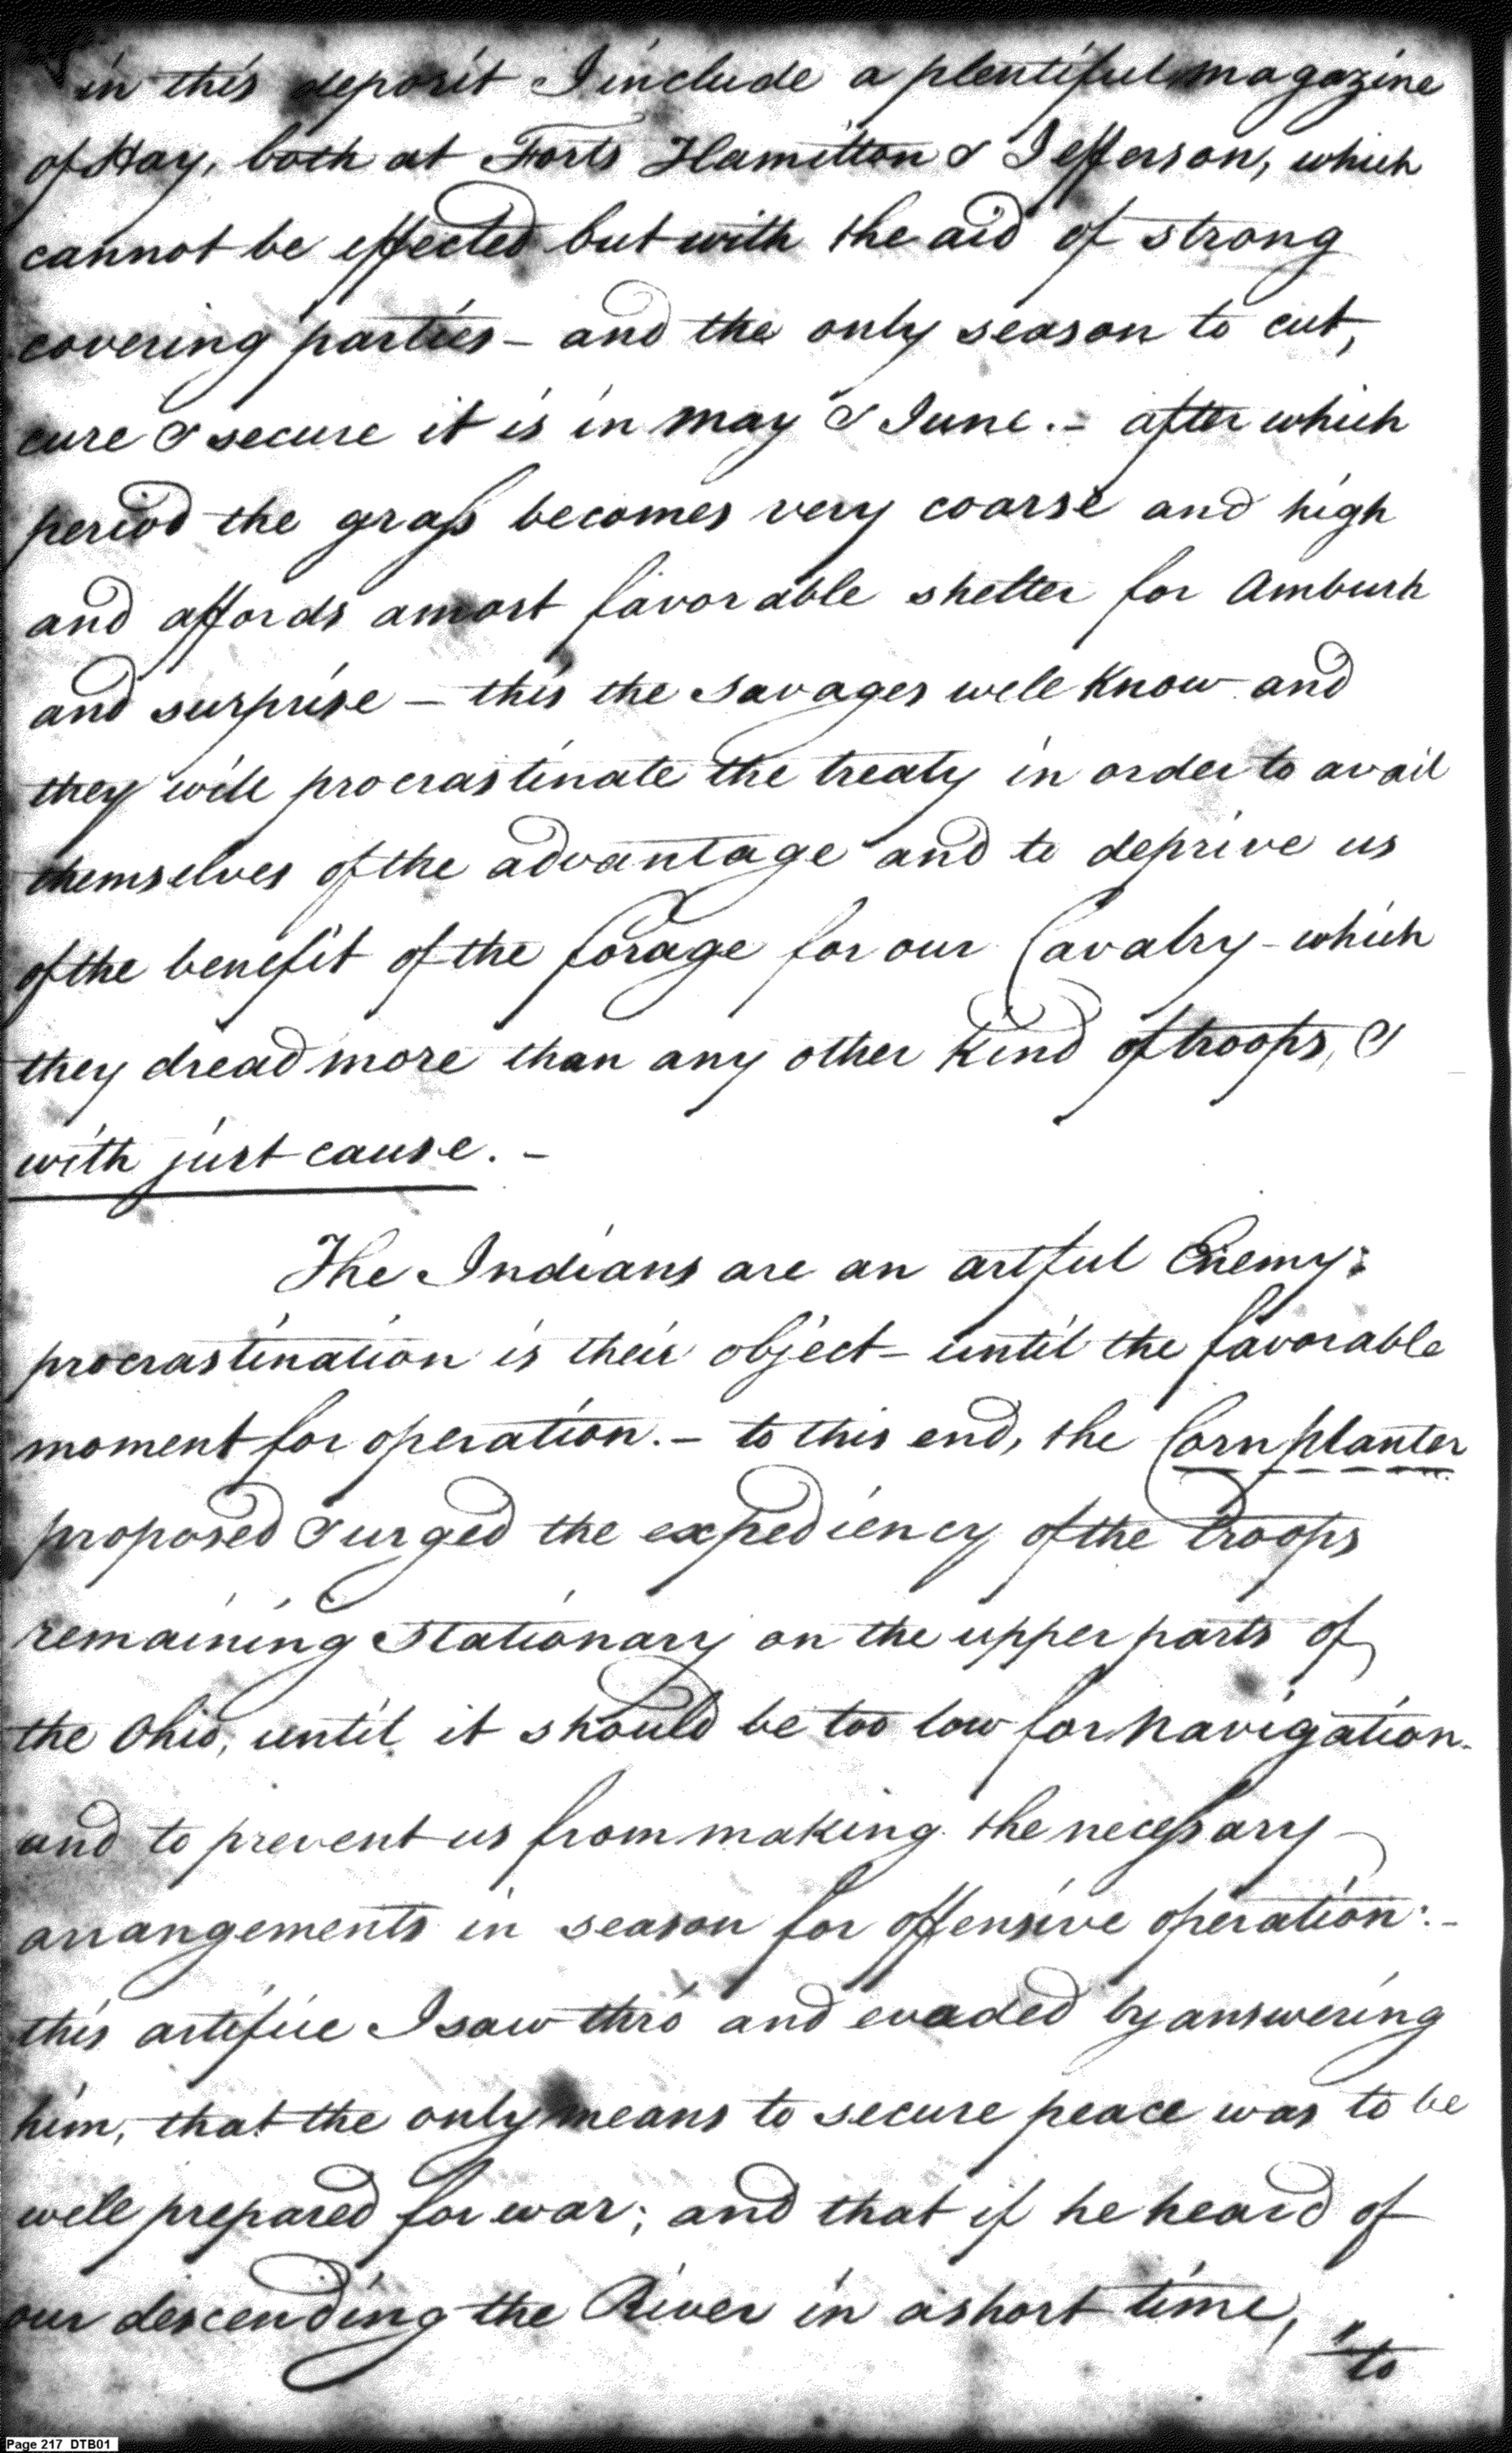 in this deposit I include a plentiful magazine
of Hay, both at Forts Hamilton & Jefferson, which
cannot be effected but with the aid of strong
covering parties – and the only season to cut,
cure & secure it is in may & June. – after which
period the grass becomes very coarse and high
and affords a most favorable shelter for Ambush
and surprise – this the savages well know and
they will procrastinate the treaty in order to avail
themselves of the advantage and to deprive us
of the benefit of the forage for our Cavalry – which
they dread more than any other kind of troops, &
with just cause. –
The Indians are an artful Enemy:
procrastination is their object – until the favorable
moment for operation. – to this end, the Cornplanter
proposed & urged the expediency of the troops
remaining Stationary on the upper parts of
the Ohio, until it should be too low for navigation.
and to prevent us from making the necessary
arrangements in season for offensive operation: –
this artifice I saw thro' and evaded by answering
him, that the only means to secure peace was to be
well prepared for war; and that if he heard of
our descending the River in a short time,
"to
Page 217 DTB01